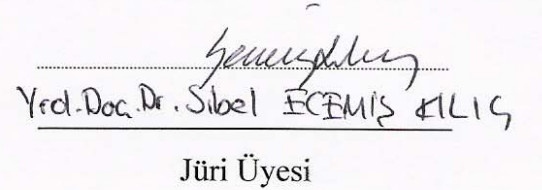 Yrd. Doç. Dr. Sibel ECEMİŞ KILIÇ
Jüri Üyesi